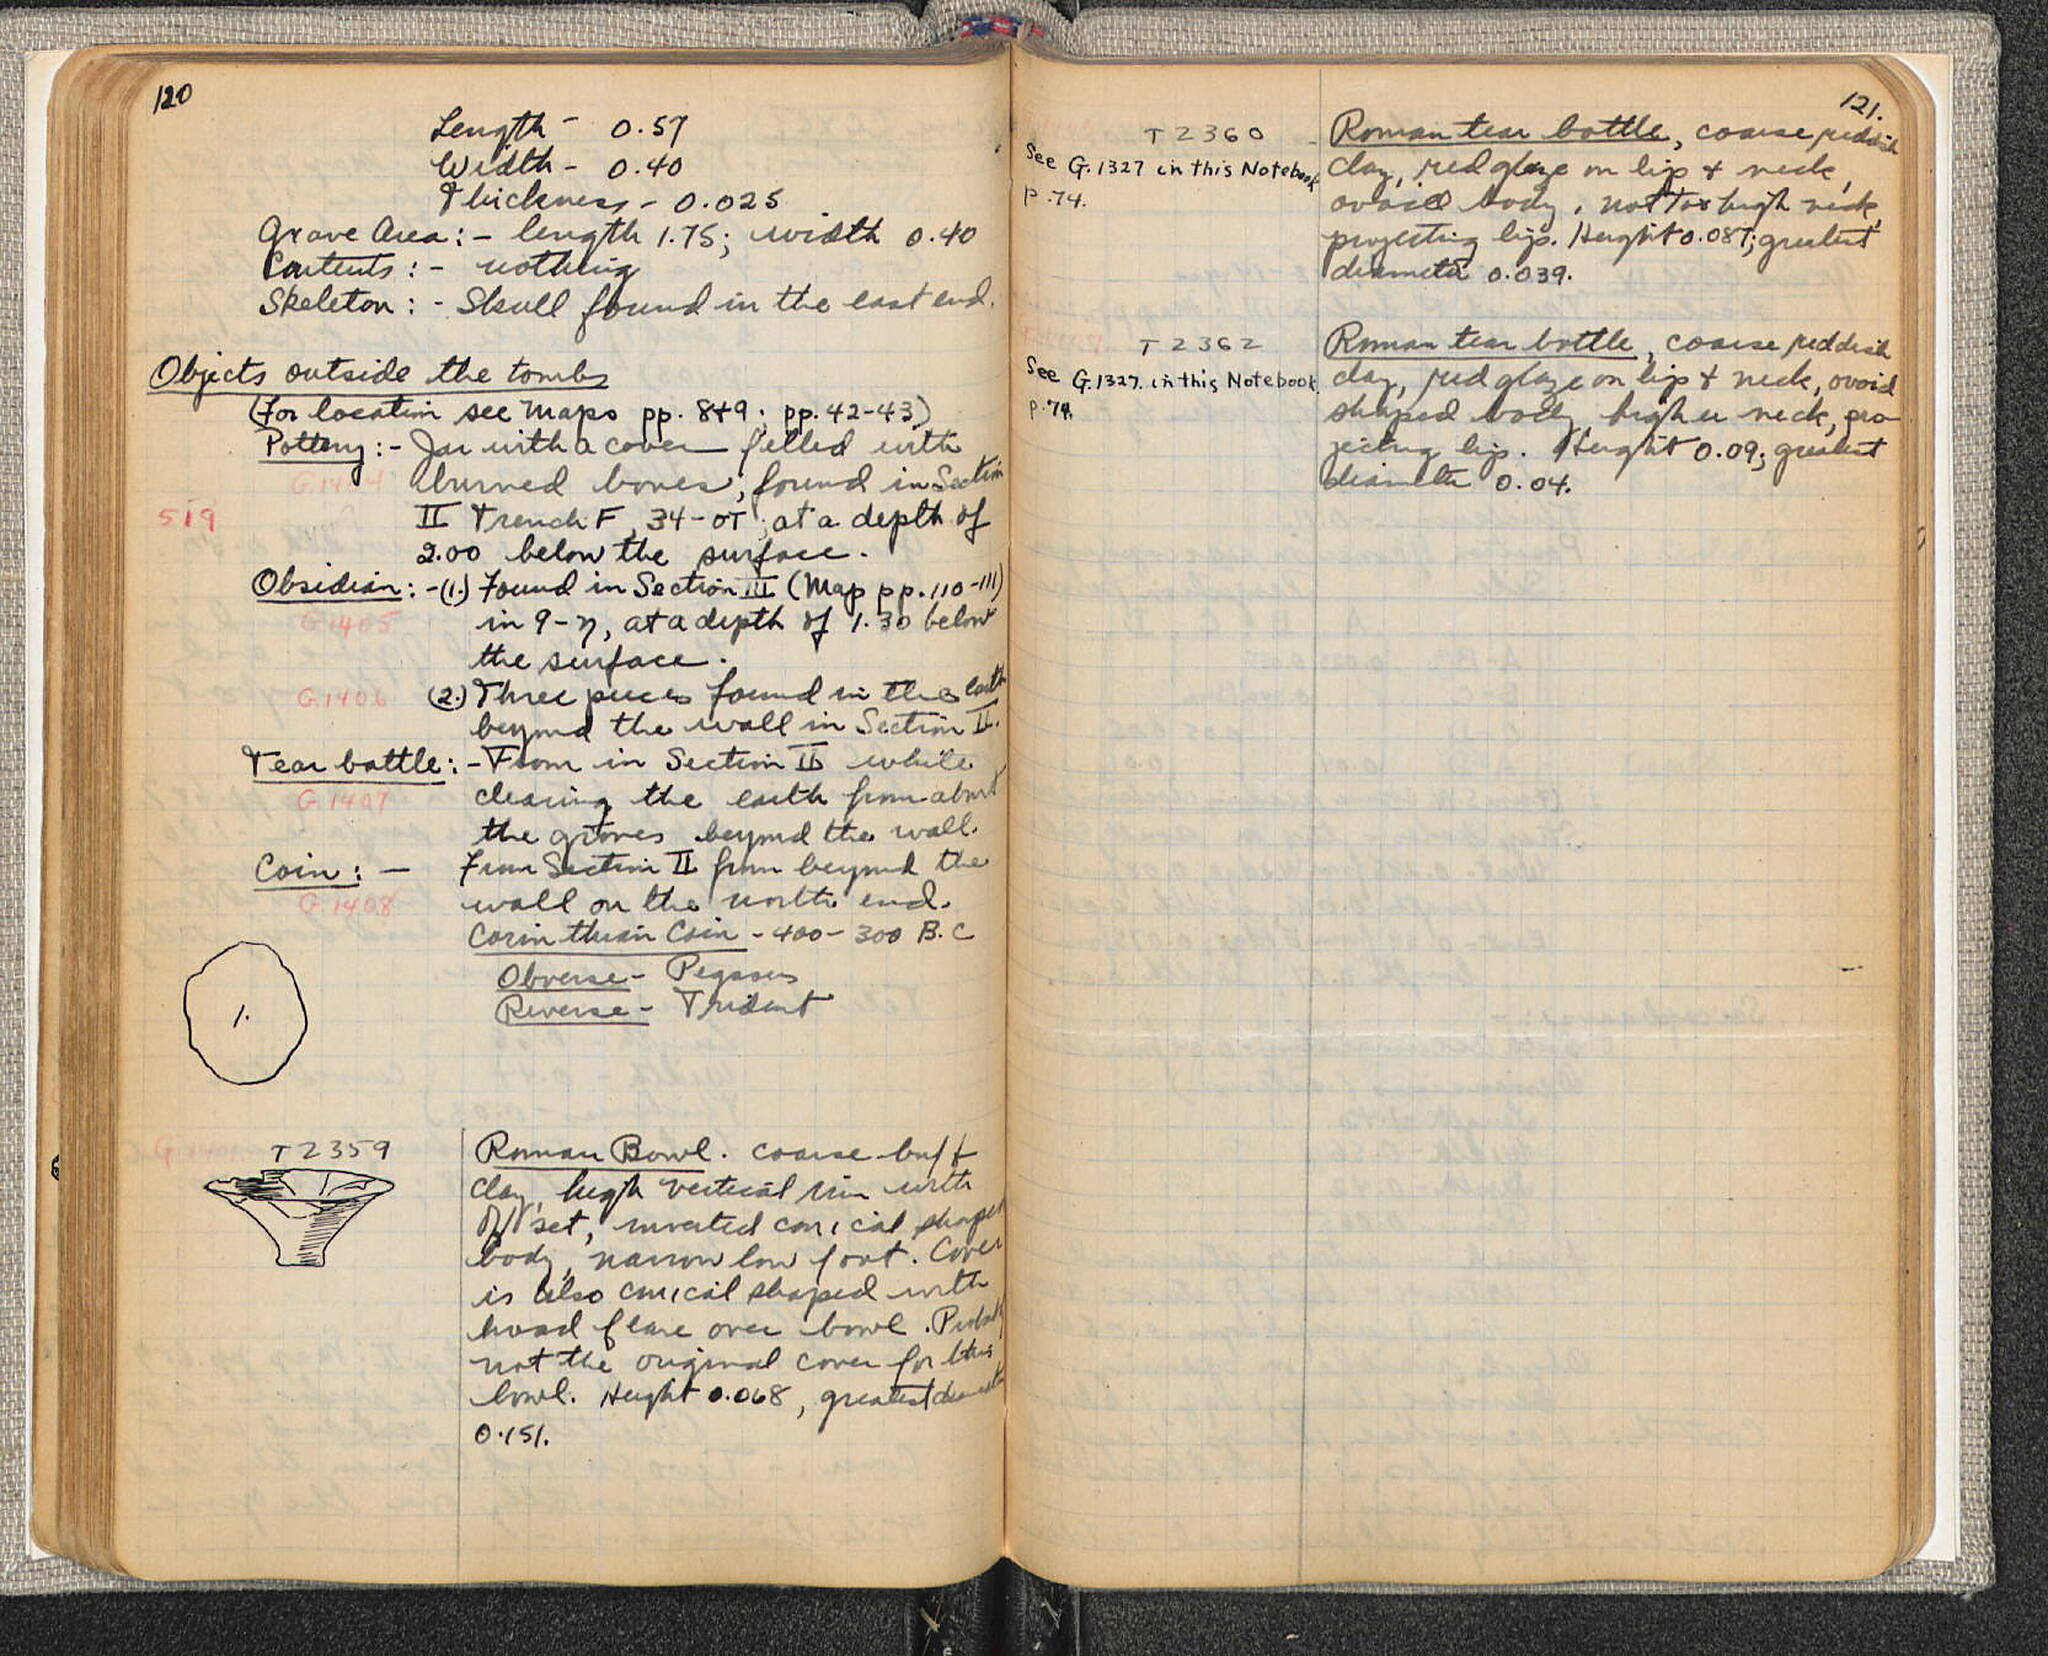 120
Length - 0.57
Width - 0.40
Thickness - 0.025
Grave Area: - length 1.75; width 0.40
Contents: - nothing
Skeleton: - Skull found in the east end.
Objects outside the tombs
(For location see Maps pp. 8+9; pp. 42-43)
Pottery: - Jar with a cover filled with
burned bones, found in Section
519
II Trench F, 34-σт, at a depth of
2.00 below the surface.
Obsidian: - (1.) Found in Section III (Map pp. 110-111)
G.1405
in 9-η, at a depth of 1.30 below
the surface.
G.1406
(2.) Three pieces found in the earth
beyond the wall in Section II.
Tear bottle: - From in Section II while
G.1407
clearing the earth from about
the graves beyond the wall.
Coin: - From Section II from beyond the
G.1408
wall on the north end.
Corinthian Coin - 400-300 B.C
Obverse - Pegasus
Reverse - Trident
1.
T 2359
Roman Bowl. coarse buff
clay, high vertical rim with
offset, inverted conical shaped
body, narrow low foot. Cover
is also conical shaped with
broad flare over bowl. Probably
not the original cover for this
bowl. Height 0.068, greatest diameter
0.151.
121.
T 2360
See G.1327 in this Notebook
p. 74.
Roman tear bottle, coarse reddish
clay, red glaze on lip + neck,
ovoid body, not too high neck,
projecting lip. Height 0.087; greatest
diameter 0.039.
T 2362
See G.1327. in this Notebook.
p. 74.
Roman tear bottle, coarse reddish
clay, red glaze on lip + neck, ovoid
shaped body, higher neck, pro-
jecting lip. Height 0.09; greatest
diameter 0.04.